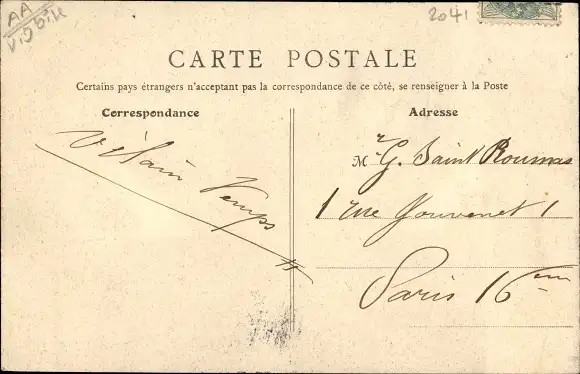 AA
2041
CARTE POSTALE
Certains pays étrangers n'acceptant pas la correspondance de ce côté, se renseigner à la Poste
Correspondance
Adresse
Vilain Temps
Mr G. Saint Roumas
1 rue Jouvenet 1
Paris 16em